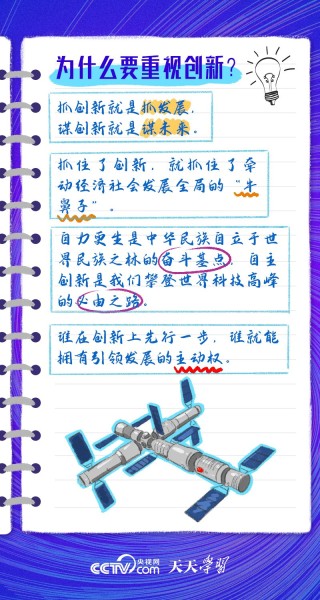 为什么要重视创新？
抓创新就是抓发展，
谋创新就是谋未来。
抓住了创新，就抓住了牵
动经济社会发展全局的“牛
鼻子”。
自力更生是中华民族自立于世
界民族之林的奋斗基点，自主
创新是我们攀登世界科技高峰
的必由之路。
谁在创新上先行一步，谁就能
拥有引领发展的主动权。
CCTV 央视网
com 天天学习